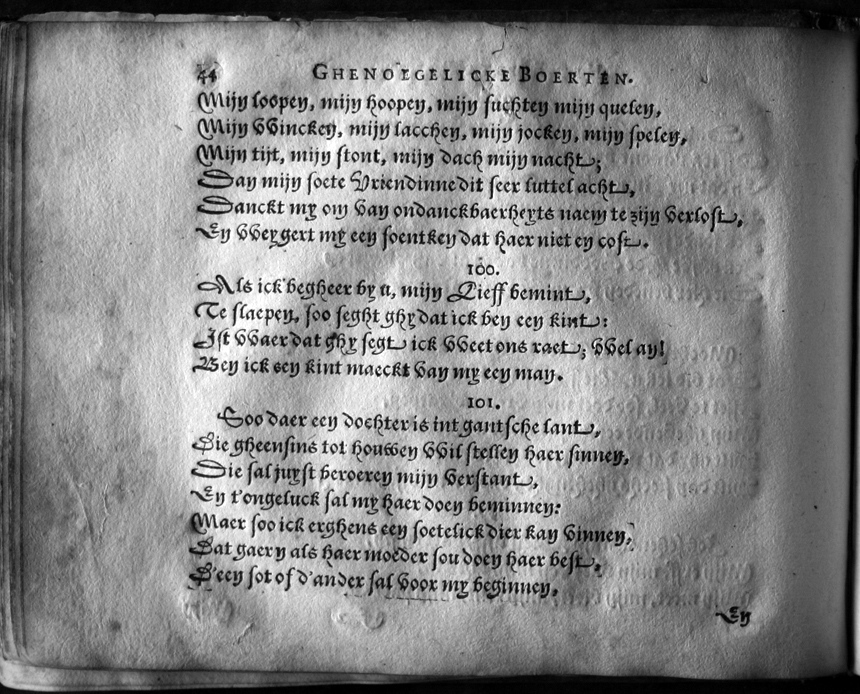 44 GHENOEGELICKE BOERTEN.
Mijn loopen, mijn hoopen, mijn suchten mijn quelen,
Mijn VVincken, mijn lacchen, mijn jocken, mijn spelen,
Mijn tijt, mijn stont, mijn dach mijn nacht;
Dan mijn soete Vriendinne dit seer luttel acht,
Danckt my om van ondanckbaerheyts naem te zijn verlost,
En VVeygert my een soentken dat haer niet en cost.
100.
Als ick begheer by u, mijn Lieff bemint,
Te slaepen, soo seght ghy dat ick ben een kint:
Ist VVaer dat ghy segt ick VVeet ons raet; VVel an!
Ben ick een kint maeckt van my een man.
101.
Soo daer een dochter is int gantsche lant,
Die gheensins tot houwen VVil stellen haer sinnen,
Die sal juyst beroeren mijn verstant,
En t'ongeluck sal my haer doen beminnen:
Maer soo ick erghens een soetelick dier kan vinnen,
Dat gaern als haer moeder sou doen haer best,
D'een sot of d'ander sal voor my beginnen,
En